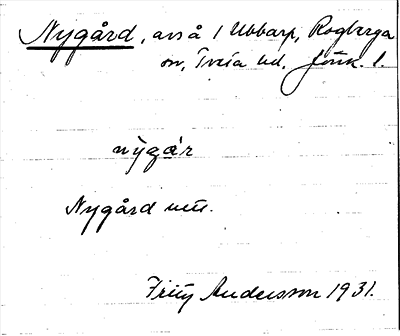 Nygård, avs å 1 Ubbarp, Rogberga
sn, Tveta hd. Jönk. l.
nỳgàr
Nygård
Fritz Andersson 1931.